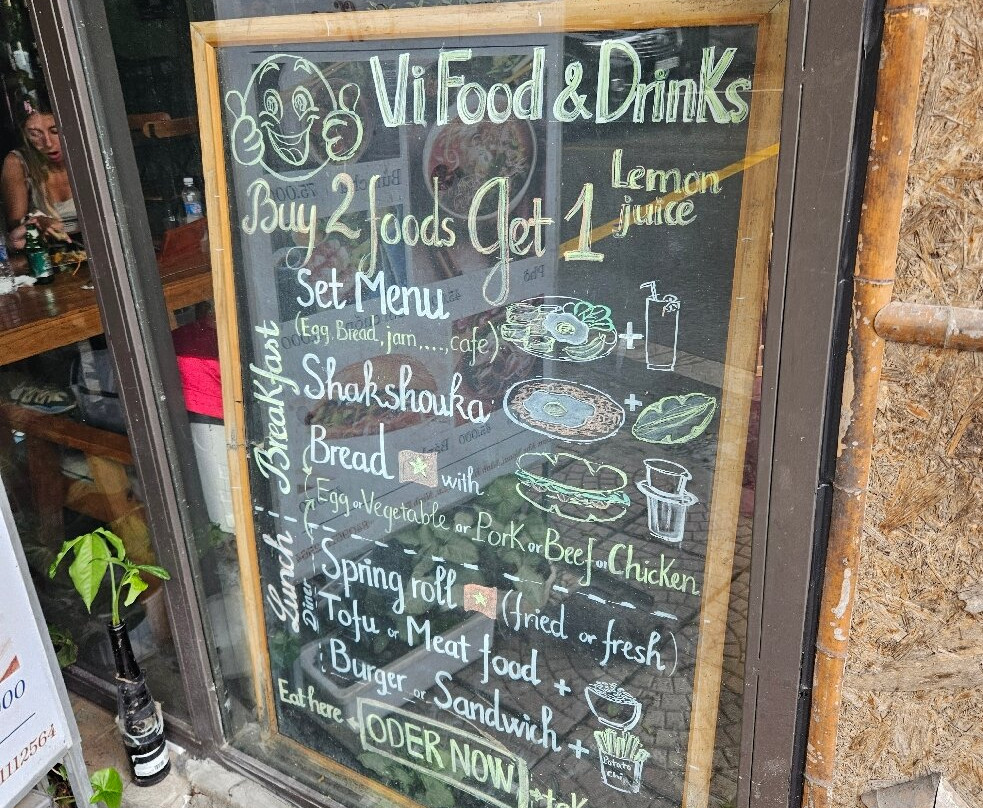 Vi Food & Drinks
Buy 2 foods Get 1 Lemon juice
Breakfast
Set Menu
(Egg, Bread, jam,...., cafe)
Shakshouka
Bread with
(Egg or Vegetable or Pork or Beef or Chicken
Lunch
Diner
Spring roll (fried or fresh)
Tofu or Meat food +
Burger or Sandwich +
Potato chip
Eat here
ODER NOW
1112564